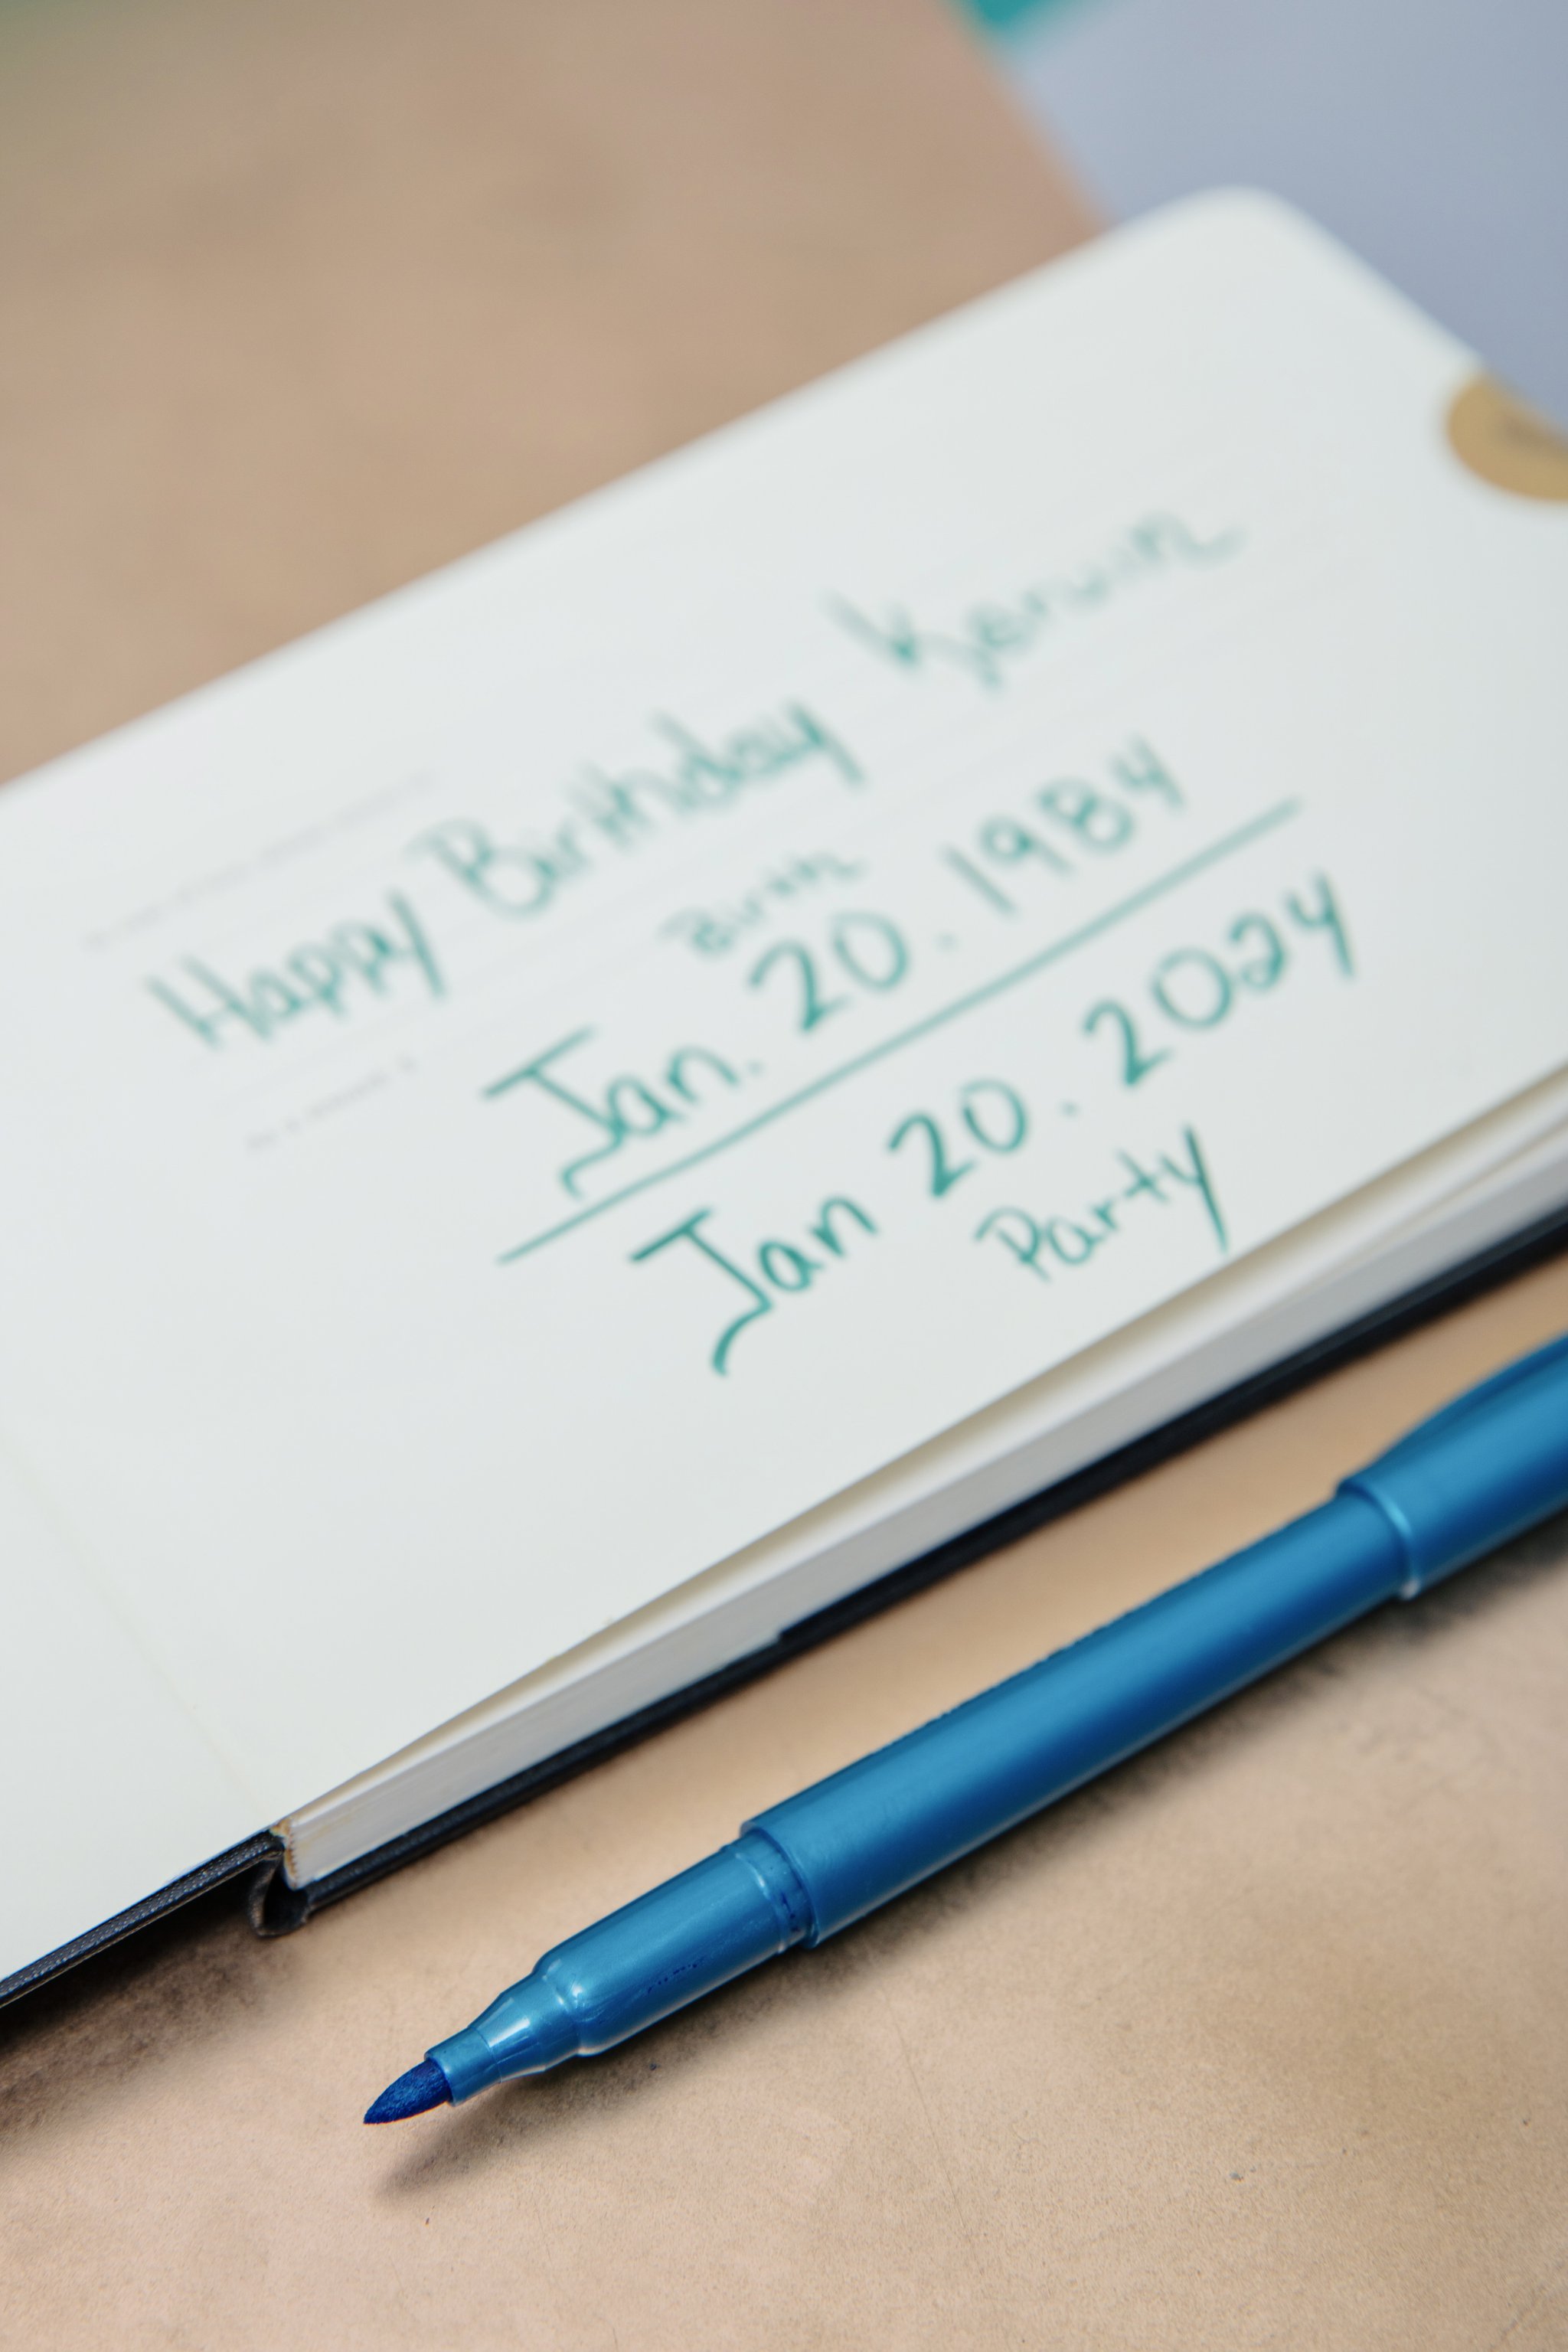 Happy Birthday Kerwin
Birth
Jan. 20. 1984
Jan 20. 2024
Party